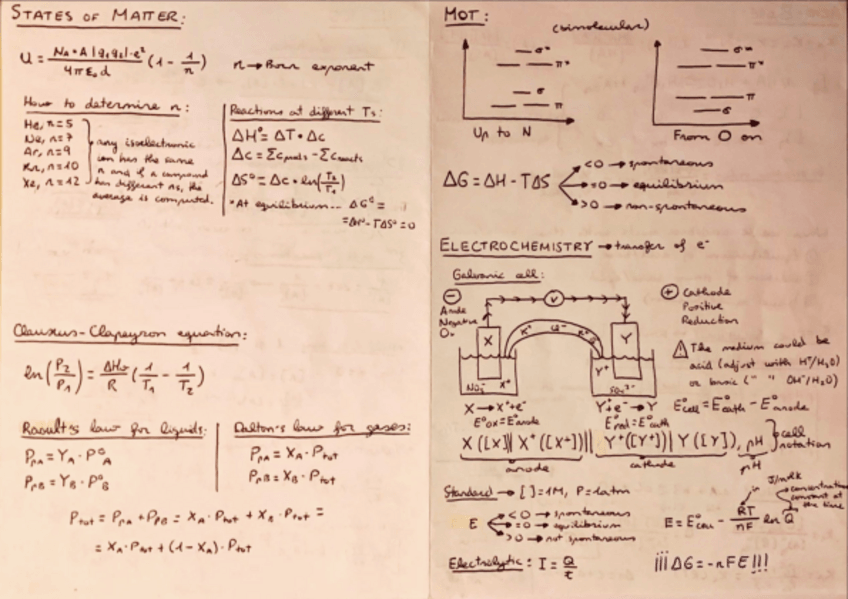 STATES OF MATTER:
U = NA·A|q₁q₂|·e²/4πε₀d (1 - 1/n)
n → Born exponent
How to determine n:
He, n=5
Ne, n=7
Ar, n=9
Kr, n=10
Xe, n=12
any isoelectronic
ion has the same
n and if a compound
has different ns, the
average is computed.
Reactions at different Ts:
ΔH° = ΔT·Δc
Δc = Σcprods - Σcreacts
ΔS° = Δc·ln(T₂/T₁)
*At equilibrium... ΔG° =
=ΔH°-TΔS°=0
Clausius-Clapeyron equation:
ln(P₂/P₁) = ΔHv/R (1/T₁ - 1/T₂)
Raoult's law for liquids:
PpA = YA · P°A
PpB = YB · P°B
Dalton's law for gases:
PpA = XA · Ptot
PpB = XB · Ptot
Ptot = PpA + PpB = XA · Ptot + XB · Ptot =
= XA · Ptot + (1-XA) · Ptot
MOT:
σ*
π*
σ
π
Up to N
σ*
π*
π
σ
From O on
ΔG = ΔH - TΔS
<0 → spontaneous
=0 → equilibrium
>0 → non-spontaneous
ELECTROCHEMISTRY → transfer of e⁻
Galvanic cell:
⊖
Anode
Negative
Ox
V
X
Y
X⁺
Y⁺
⊕ Cathode
Positive
Reduction
⚠ The medium could be
acid (adjust with H⁺/H₂O)
or basic (" " OH⁻/H₂O)
X → X⁺+e⁻
E°ox=E°anode
Y⁺+e⁻ → Y
E°red=E°cath
E°cell = E°cath - E°anode
X ([X]) || X⁺ ([X⁺]) || Y⁺([Y⁺]) | Y ([Y]), pH
anode
cathode
pH
cell
notation
Standard → [ ]=1M, P=1atm
E
<0 → spontaneous
=0 → equilibrium
>0 → not spontaneous
E = E°cell - RT/nF ln Q
J/molK
concentration
constant at
the time
Electrolytic: I = Q/t
¡¡¡ΔG = -nFE!!!